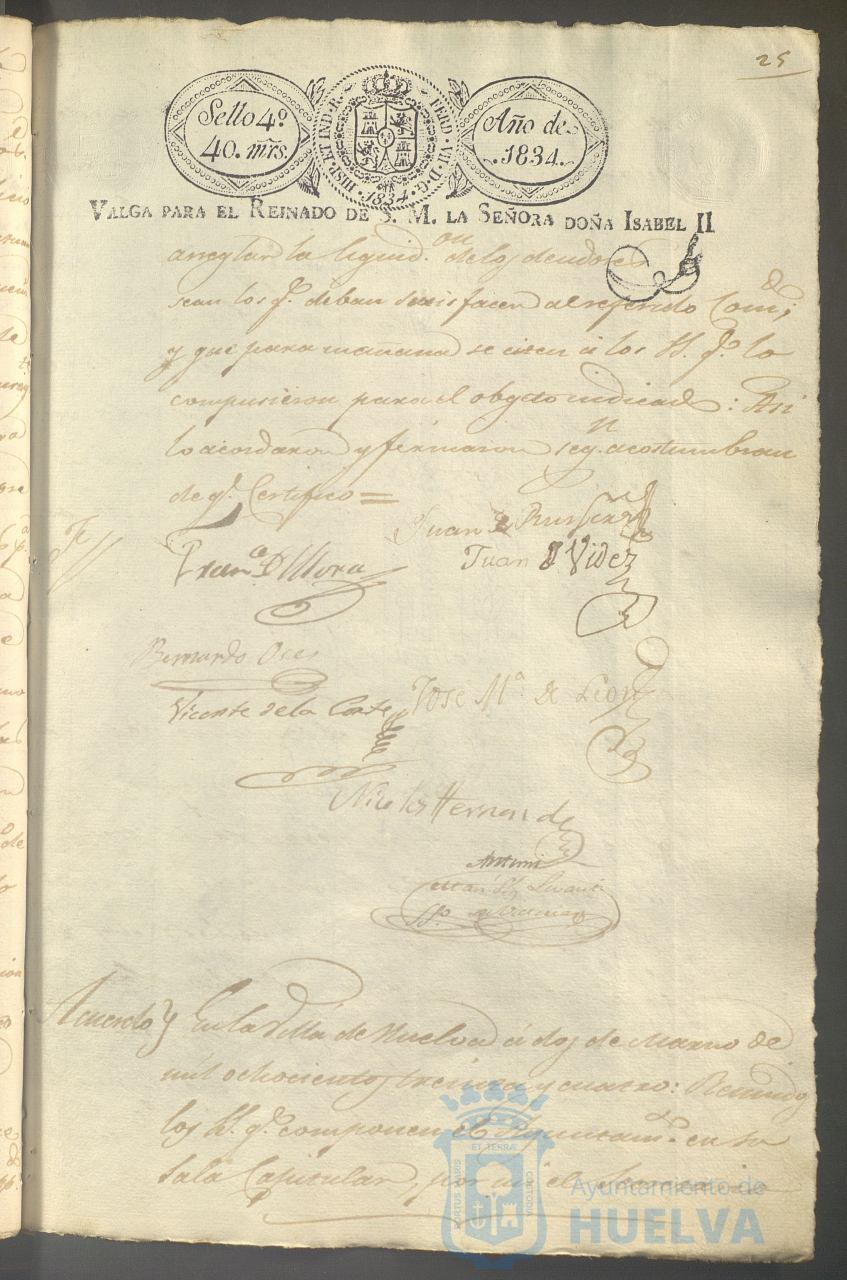 25
Sello 4º
40. mrs.
HISP. ET IND. R. FERD. VII. D. G.
1834
Año de
1834.
VALGA PARA EL REINADO DE S. M. LA SEÑORA DOÑA ISABEL II
arreglar la liquid.on de los
sean los q.e deban satisfacer al referido Com.do;
y que para mañana se citen á los SS. q.e lo
compusieron para el obgeto indicado: Asi
lo acordaron y firmaron seg.n acostumbran
de q.e Certifico =
Juan
Fran.co D Mora
Juan J Videz
Bernardo
Vicente de la Corte
Jose M.a de Leon
Nicolas Hernandez
Antemi
Acuerdo } En la Villa de Huelva á dos de Marzo de
mil ochocientos treinta y cuatro: Reunidos
los SS. q.e componen el Ayuntam.to en su
Sala Capitular, por mi el
PORTUS MARIS
ET TERRÆ
CUSTODIA
Ayuntamiento de
HUELVA